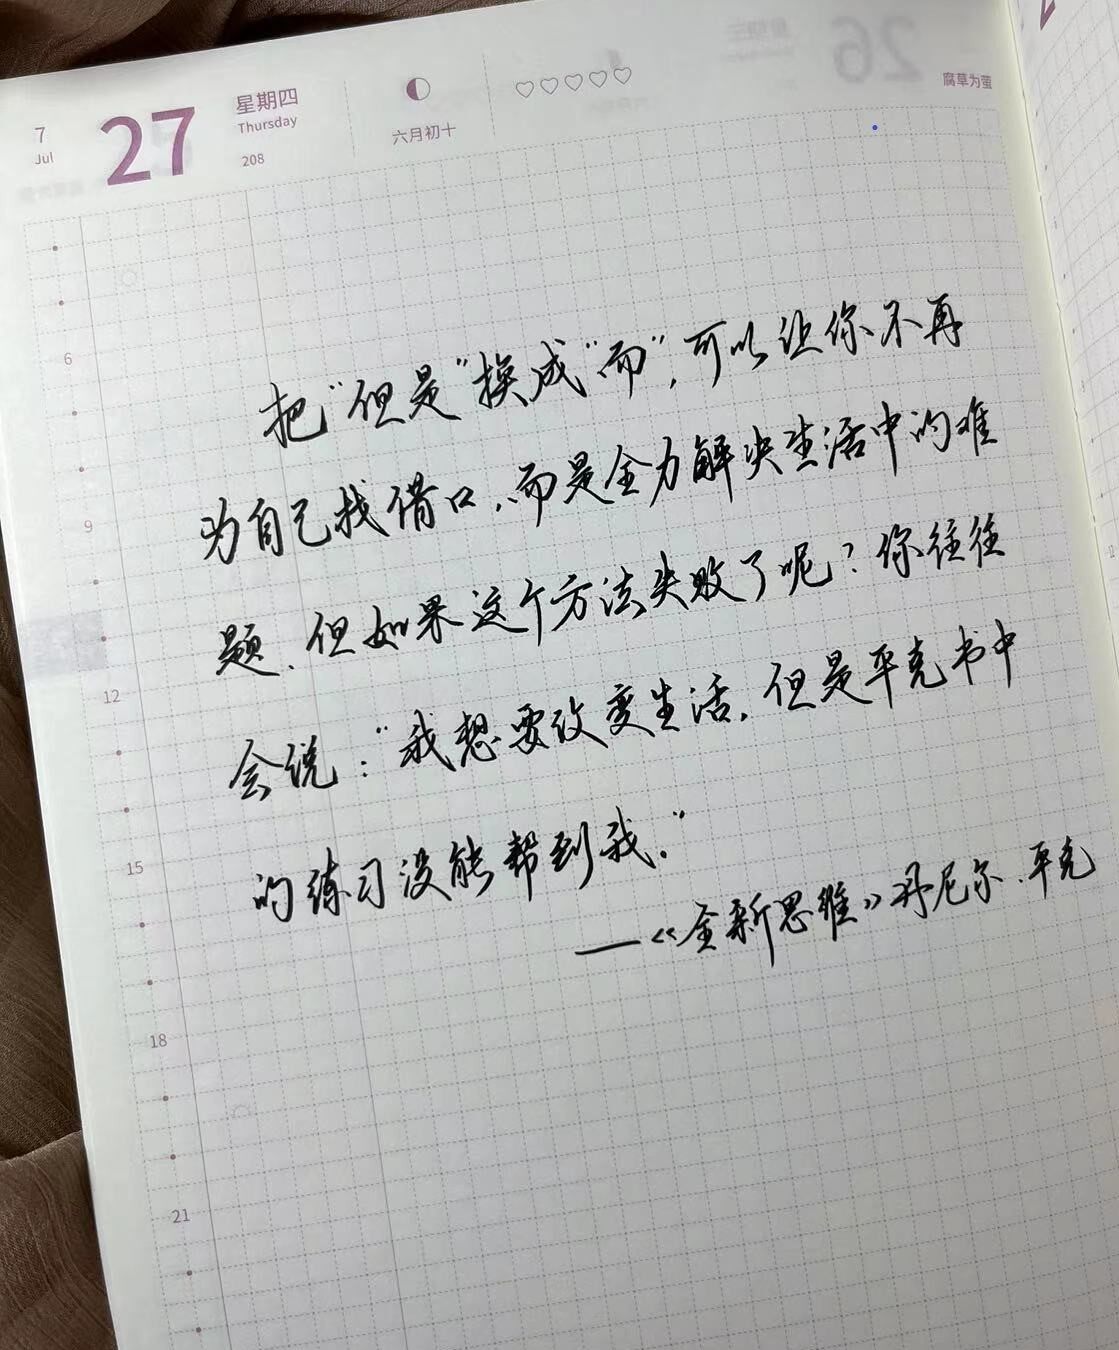 7
Jul
27
星期四
Thursday
208
六月初十
26
腐草为萤
6
9
12
15
18
21
把“但是”换成“而”，可以让你不再
为自己找借口，而是全力解决生活中的难
题、但如果这个方法失败了呢？你往往
会说：“我想要改变生活，但是平克书中
的练习没能帮到我。”
——《全新思维》丹尼尔.平克